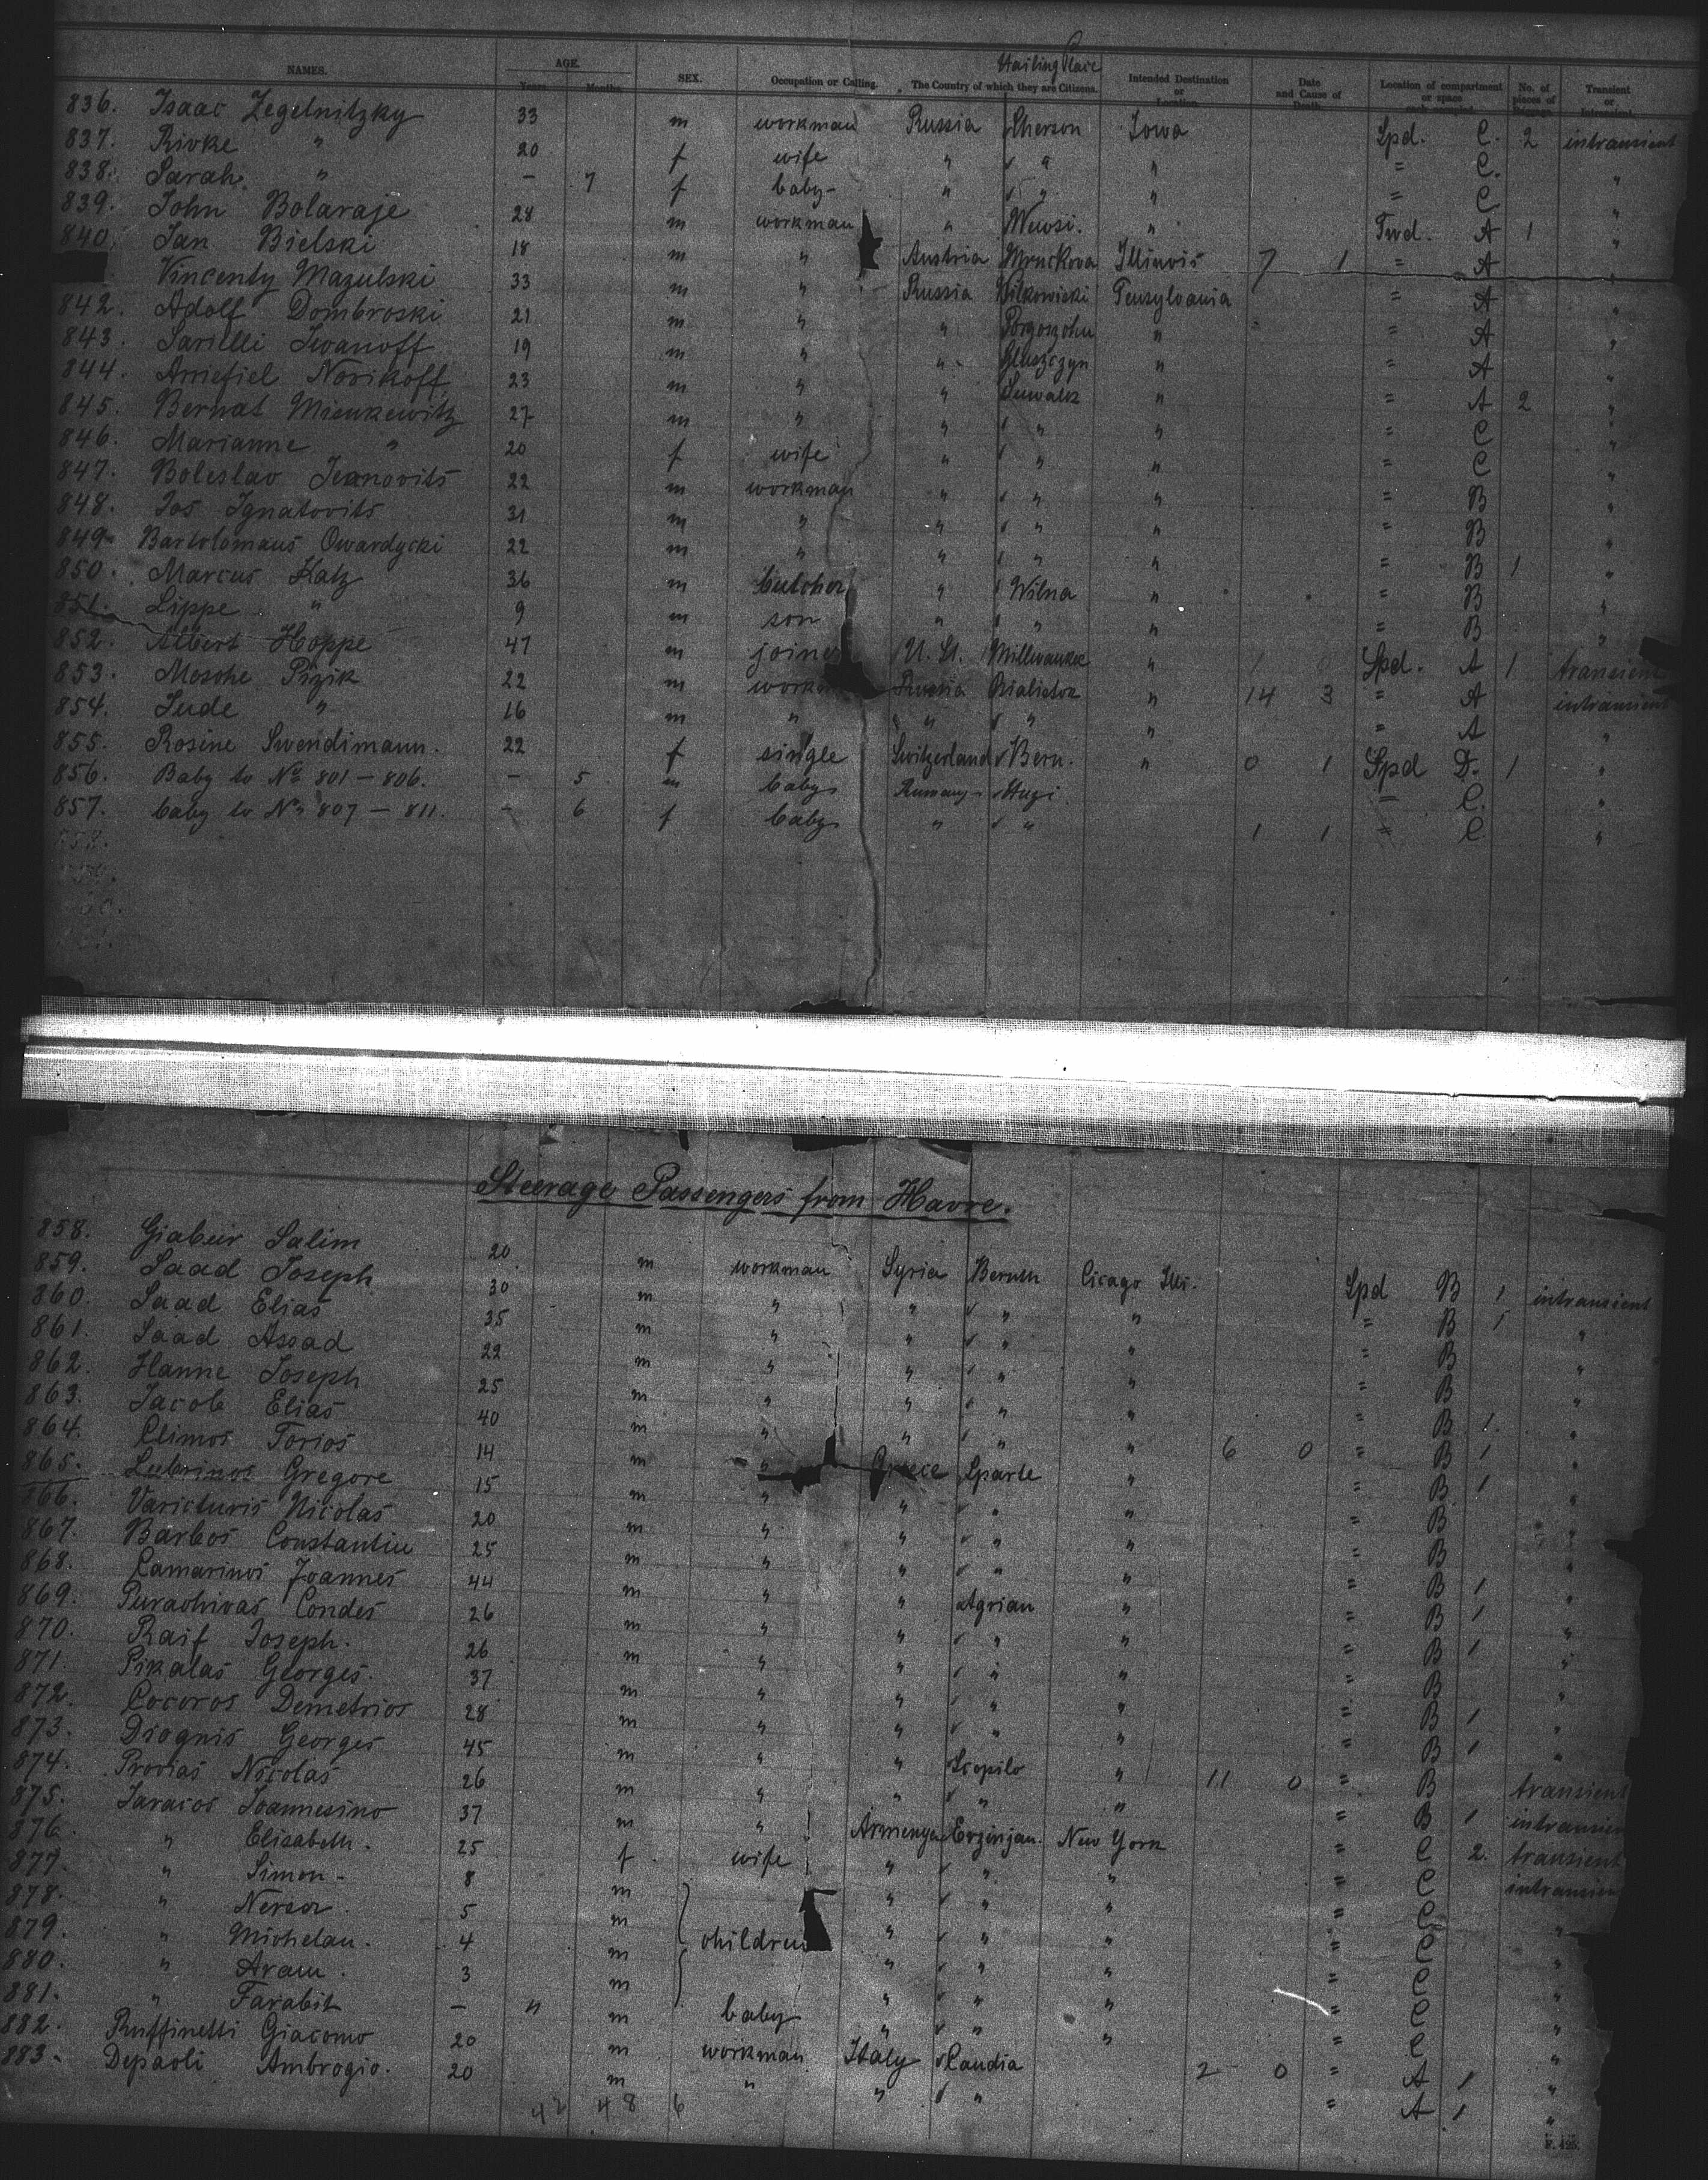 NAMES. AGE. Years Months SEX. Occupation or Calling. The Country of which they are Citizens. Hailing Place Intended Destination or Location. Date and Cause of Death. Location of compartment or space No. of pieces of Transient or Intransient
836. Isaac Zegelnitzky 33 m workman Russia Cherson Iowa Spd. C. 2 intransient
837. Rivke " 20 f wife " " " = C. "
838. Sarah " - 7 f baby- " " " = C "
839. John Bolaraje 28 m workman " " Fwd. A 1 "
840. Jan Bielski 18 m " Austria Illinois 7 1 = A "
Vincenty Mazulski 33 m " Russia Wilkowiski Pensylvania = A "
842. Adolf Dombroski 21 m " " " = A "
843. Iwanoff 19 m " " " = A "
844. Norikoff 23 m " " Suwalk " = A 2 "
845. Bernat Mienkewitz 27 m " " " " = C "
846. Marianne " 20 f wife " " " = C "
847. Boleslav Ivanovits 22 m workman " " " = B "
848. Jos Ignatovits 31 m " " " " = B "
849. Bartolomaus Owardycki 22 m " " " " = B 1 "
850. Marcus Katz 36 m butcher " Wilna " = B "
851. Lippe " 9 m son " " " = B "
852. Albert Hoppe 47 m joiner U. St. Millwaukee " 1 0 Spd. A 1 transient
853. Mosche Pizik 22 m workman Russia Bialistok " 14 3 = A intransient
854. Jude " 16 m " " " " = A "
855. Rosine Swendimann. 22 f single Switzerland Bern. " 0 1 Spd D. 1 "
856. Baby to No 801 - 806. - 5 m baby Rumany - = C. "
857. baby to No 807 - 811. - 6 f baby " " 1 1 = C. "
858.
Steerage Passengers from Havre.
858. Giabeir Salim 20 m workman Syria Cicago Illi. Spd B 1 intransient
859. Saad Joseph 30 m " " " " = B 1 "
860. Saad Elias 35 m " " " " = B "
861. Saad Assad 22 m " " " " = B "
862. Hanne Joseph 25 m " " " " = B 1. "
863. Jacob Elias 40 m " " " " 6 0 = B 1 "
864. Climos Torios 14 m " Greece Sparte " = B 1 "
865. Lubrinos Gregore 15 m " " " " = B "
866. Varicturis Nicolas 20 m " " " " = B "
867. Barbos Constantin 25 m " " " " = B 1 "
868. Camarinos Joannes 44 m " " Agrian " = B 1 "
869. Condes 26 m " " " " = B 1 "
870. Raif Joseph. 26 m " " " " = B "
871. Pikalas Georges. 37 m " " " " = B 1 "
872. Cocoros Demetrios 28 m " " " " = B 1 "
873. Diognis Georges 45 m " " Scopilo " 11 0 = B transient
874. Provias Nicolas 26 m " " " " = B 1 intransient
875. Saracos Joannesino 37 m " Armenya Erzinjan. New York = C 2. transient
876. " Elisabeth. 25 f wife " " " = C intransient
877. " Simon - 8 m " " " = C "
878. " Nersor. 5 m children " " " = C "
879. " Michelau. 4 m " " " = C "
880. " Aram. 3 m " " " = C "
881. " Farabit - " m baby " " " = C "
882. Ruffinetti Giacomo 20 m workman Italy Candia 2 0 = A 1 "
883. Depaoli Ambrogio. 20 m " " " = A 1 "
42 48 6